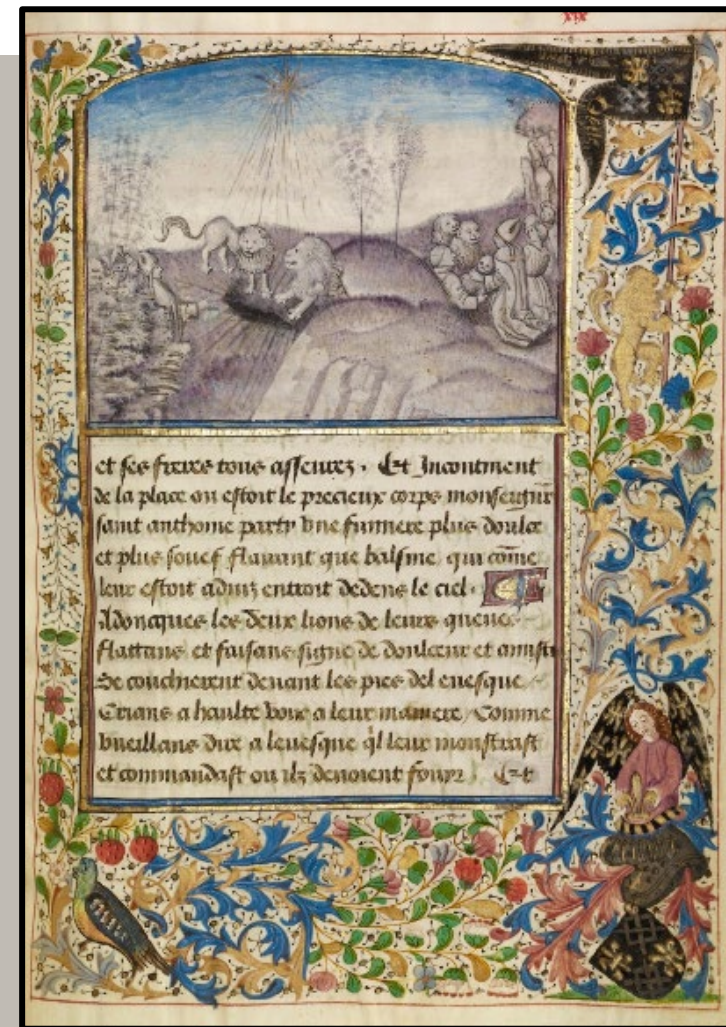 xix
et ses freres tous asseurez . Et Incontinent
de la place ou estoit le precieux corps monseigneur
saint anthoine party vne fumiere plus doulce
et plus souef flairant que balsme qui cōme
leur estoit aduiz entroit dedens le ciel .
Adoncques les deux lions de leurs queues
flattans et faisans signe de doulceur et amistie
Se coucherent deuant les pies del euesque
Crians a haulte voix a leur maniere / Comme
vueillans dire a leuesque q̇l leur monstrast
et commandast ou ilz deuoient fouyr Et